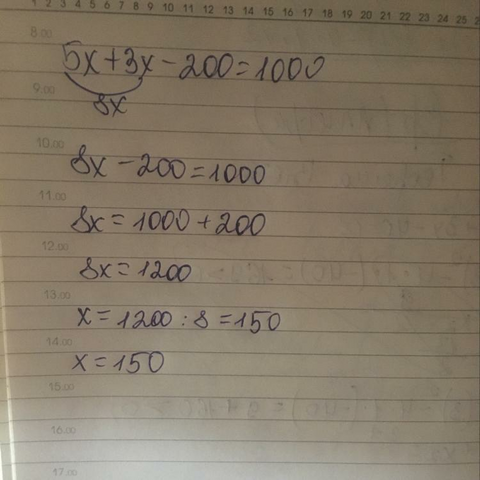 1 2 3 4 5 6 7 8 9 10 11 12 13 14 15 16 17 18 19 20 21 22 23 24 25
8.00
5x+3x-200=1000
9.00
8x
10.00
8x-200=1000
11.00
8x=1000+200
12.00
8x=1200
13.00
x=1200:8=150
14.00
x=150
15.00
16.00
17.00